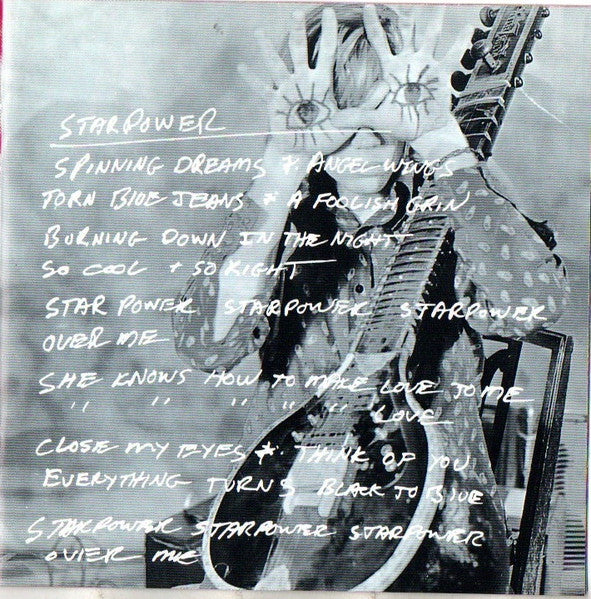 STARPOWER
SPINNING DREAMS & ANGEL WINGS
TORN BLUE JEANS & A FOOLISH GRIN
BURNING DOWN IN THE NIGHT
SO COOL + SO RIGHT
STAR POWER STARPOWER STARPOWER
OVER ME
SHE KNOWS HOW TO MAKE LOVE TO ME
" " " " " LOVE
CLOSE MY EYES & THINK OF YOU
EVERYTHING TURNS BLACK TO BLUE
STARPOWER STARPOWER STARPOWER
OVER ME